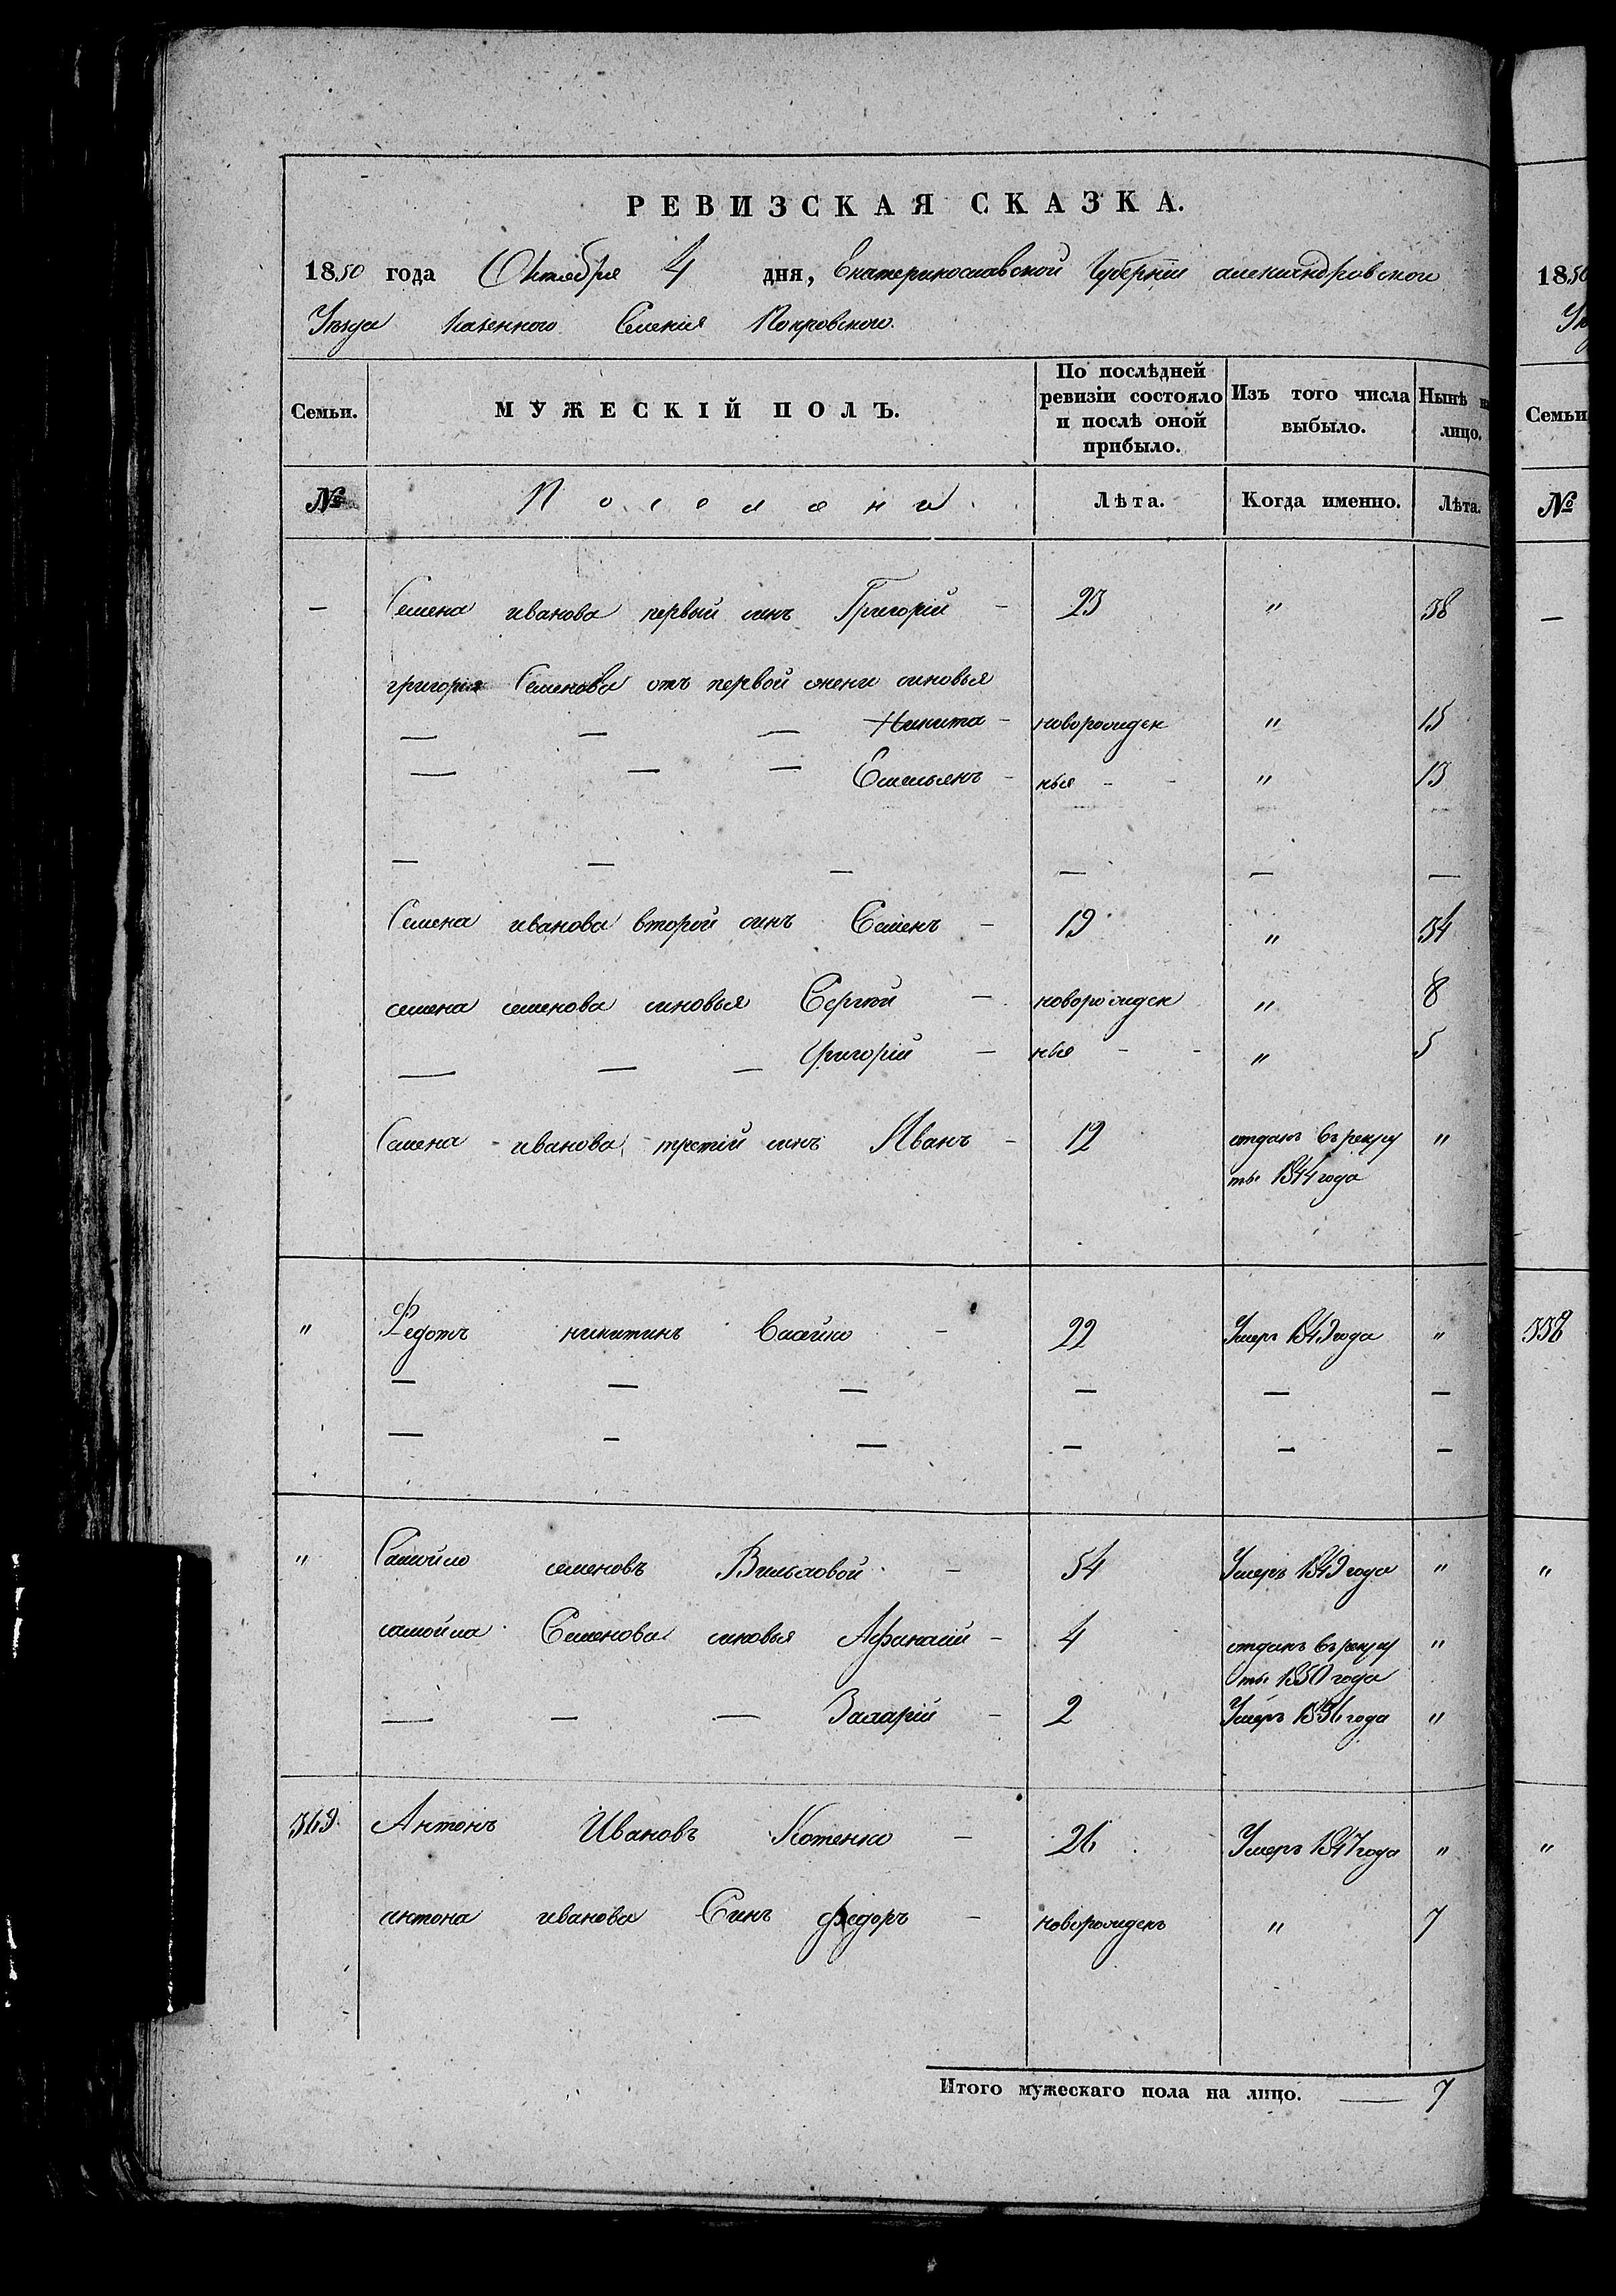 РЕВИЗСКАЯ СКАЗКА.
1850 года Октября 4 дня, Екатеринославской Губерніи александровского
Уезда Казенного Селения Покровского.
Семьи. МУЖЕСКІЙ ПОЛЪ. По послѣдней ревизіи состояло и послѣ оной прибыло. Изъ того числа выбыло. Нынѣ на лицо.
№ Поселяни. Лѣта. Когда именно. Лѣта.
— Семена иванова первый синъ Григорій — 23 " 38
григория Семенова отъ первой жени синовья
— — — Никита — новорожден " 15
— — — Емельянъ — ныя - - " 13
— — — — — —
Семена иванова второй синъ Семенъ — 19 " 34
семена семенова синовья Сергѣй — новорожден " 8
— — — григорій — ныя - - " 5
Семена иванова третій синъ Иванъ — 12 отданъ въ рекру "
ты 1844 года
" Федотъ никитинъ — 22 Умеръ 1849 года "
— — — — — —
— — — — — —
" Самойло семеновъ Вильховой — 54 Умеръ 1849 года "
самойла Семенова синовья Афанасій — 4 отданъ въ рекру "
ты 1850 года
— — — Захарій — 2 Умеръ 1836 года "
369 Антонъ Ивановъ Котенко — 26 Умеръ 1847 года "
антона иванова Синъ федоръ — новорожденъ " 7
Итого мужескаго пола на лицо. — 7
1850
Семьи
№
—
"
"